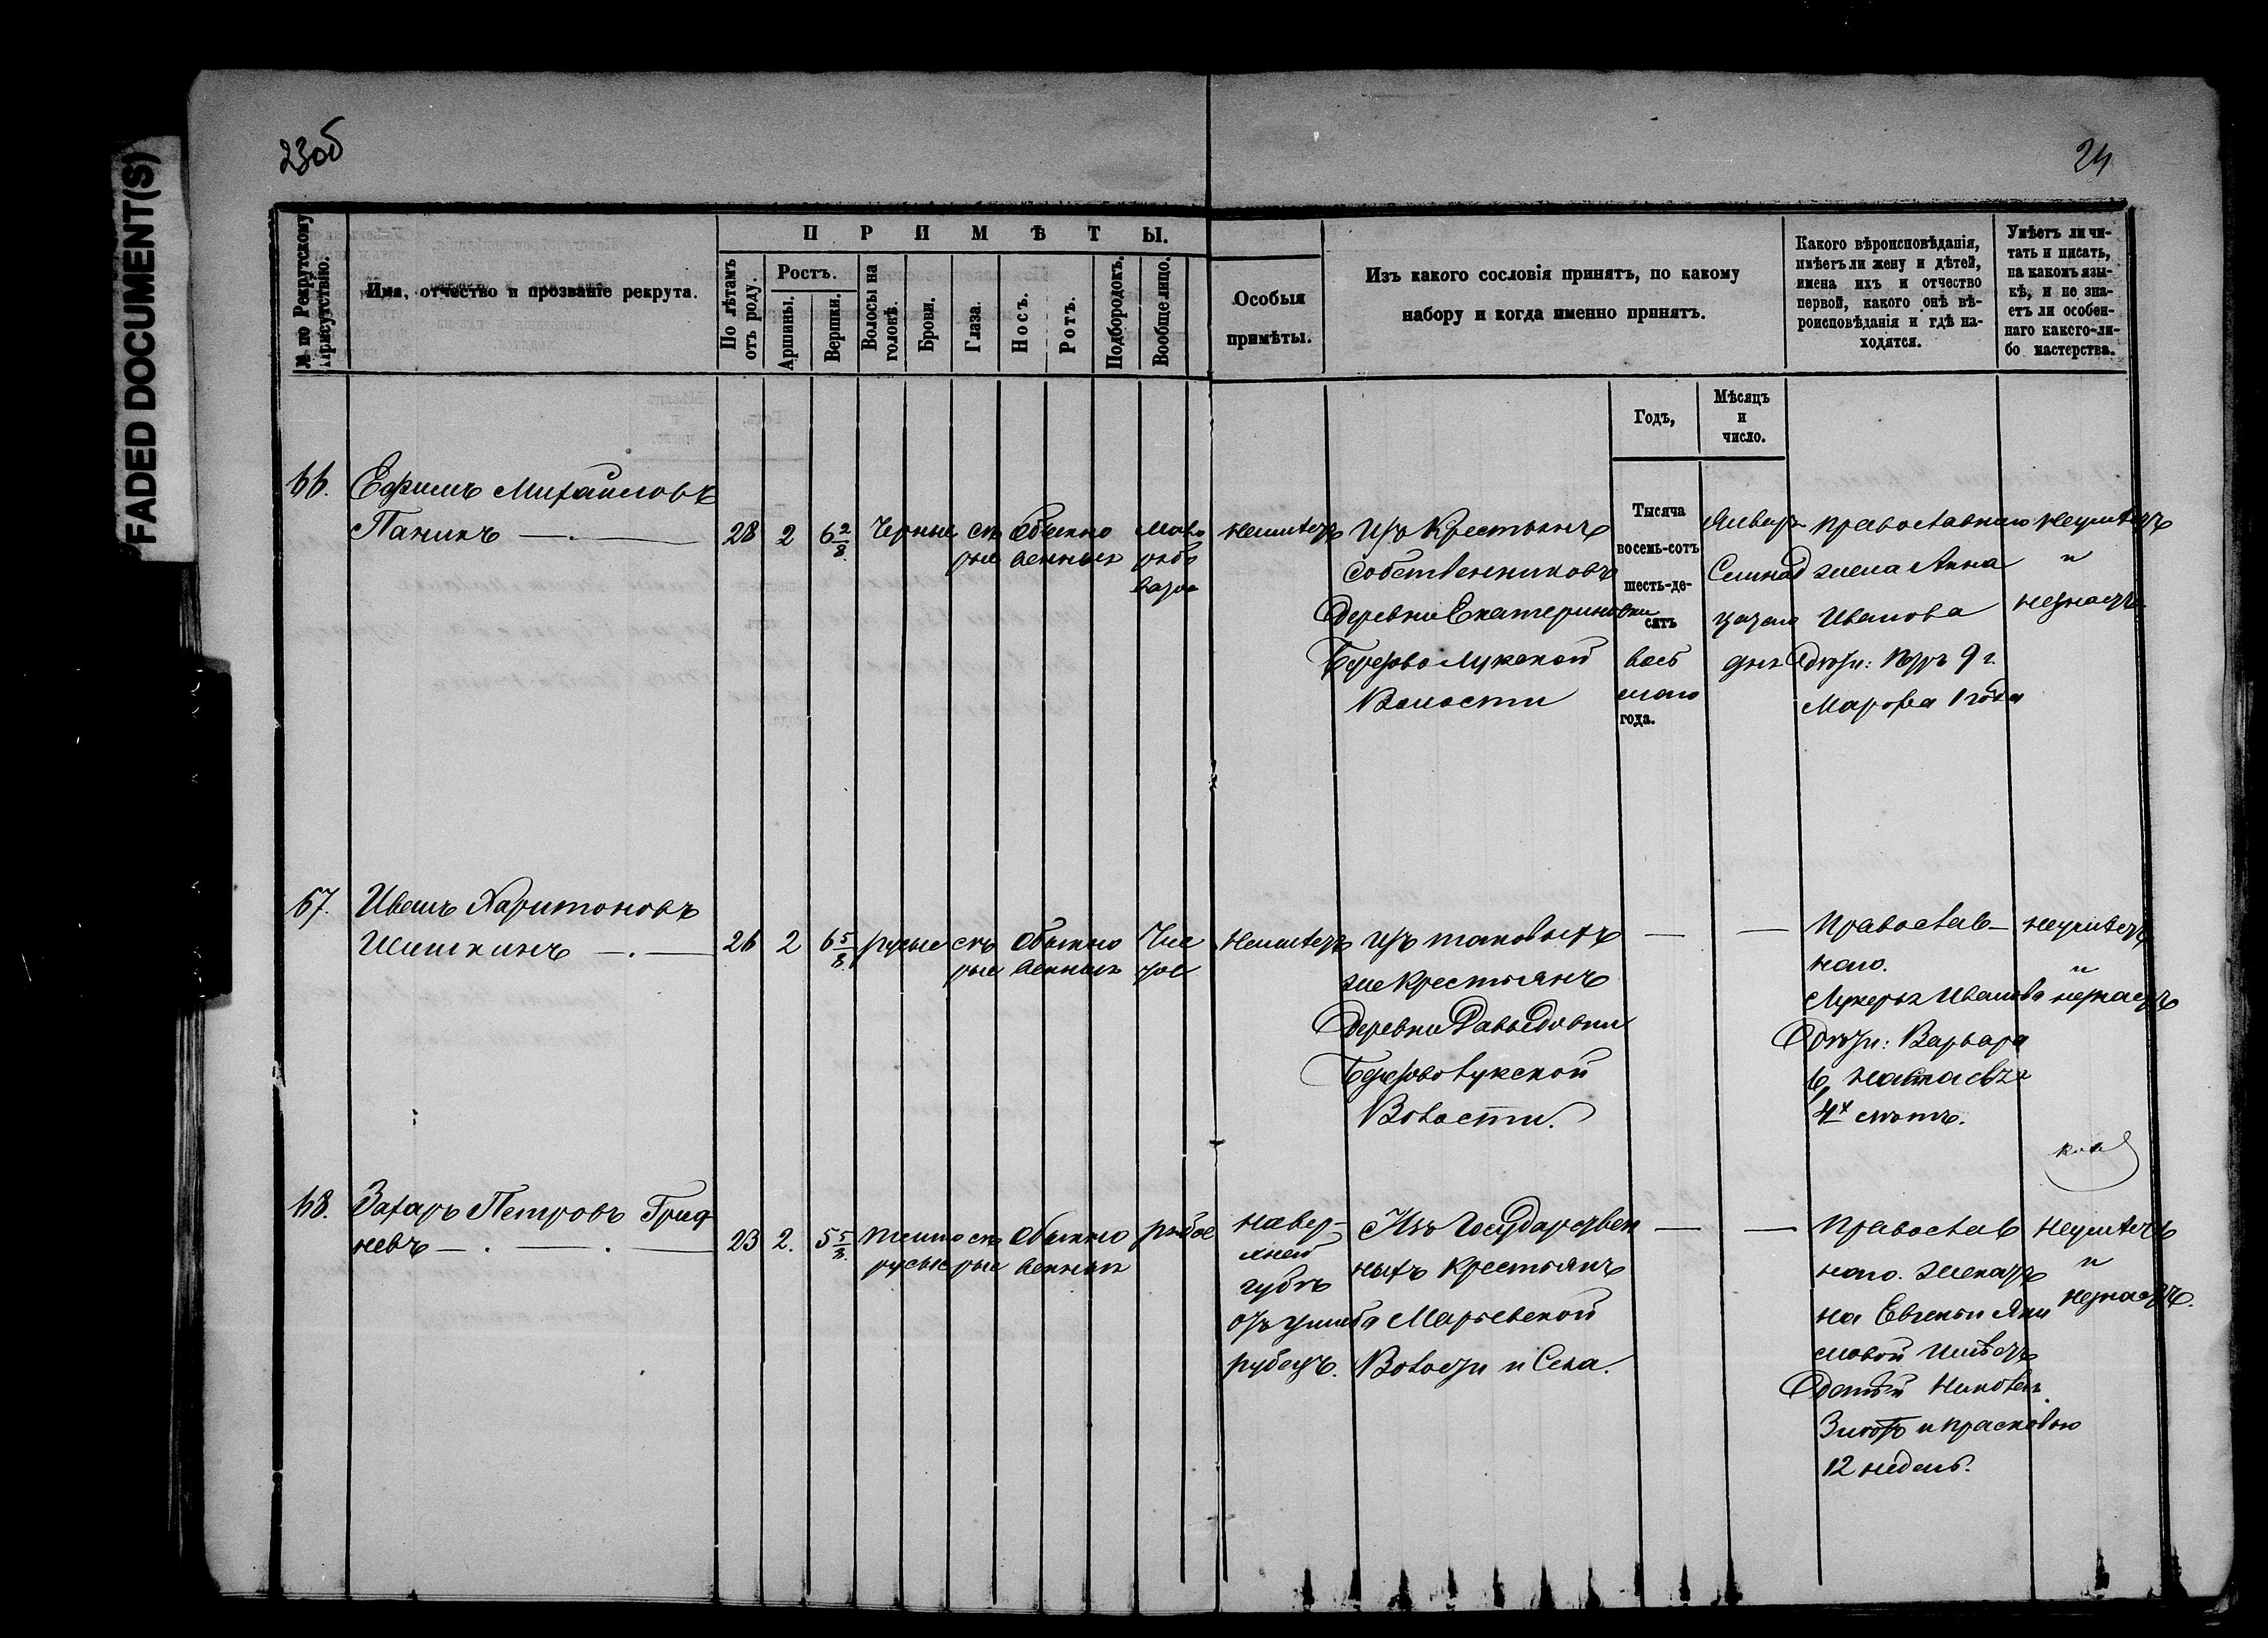 FADED DOCUMENT(S)
23об
24
№ по Рекрутскому присутствію.
Имя, отчество и прозваніе рекрута.
ПРИМѢТЫ.
По лѣтамъ отъ роду.
Ростъ.
Аршины.
Вершки.
Волосы на головѣ.
Брови.
Глаза.
Носъ.
Ротъ.
Подбородокъ.
Вообще лицо.
Особыя
примѣты.
Изъ какого сословія принятъ, по какому
набору и когда именно принятъ.
Какого вѣроисповѣданія,
имѣетъ ли жену и дѣтей,
имена ихъ и отчество
первой, какого онѣ вѣ-
роисповѣданія и гдѣ на-
ходятся.
Умѣетъ ли чи-
тать и писать,
на какомъ язы-
кѣ, и не зна-
етъ ли особен-
наго какого-ли-
бо мастерства.
Годъ,
Мѣсяцъ
и
число.
66.
Ефимъ Михайловъ
Панинъ
28 2 6 2/8
Черные
сѣ
рые
обыкно
венныя
неимѣетъ
Изъ Крестьянъ
Собственниковъ
Деревни Екатериновки
Березово Лукской
Волости
Тысяча
восемь-сотъ
шесть-де-
сятъ
вось
маго
года.
Январь
Семнад
цатаго
дня
православнаго
жена Анна
Иванова
дѣти: Петръ 9 г.
Марфа 1 года
Неумѣетъ
и
незнаетъ
67.
Иванъ Харитоновъ
Шишкинъ
26 2 6 5/8
русые
сѣ
рые
обыкно
венныя
Чис
тое
Неимѣетъ
изъ таковыхъ
же крестьянъ
Деревни Давыдовки
Березоволукской
Волости.
Православ-
наго.
Лукерья Иванова
дѣти: Варвара
6, Наталья
4х лѣтъ.
неумѣетъ
и
незнаетъ
68.
Захаръ Петровъ Грид
невъ
23 2. 5 5/8
темно
русые
сѣ
рые
обыкно
венныя
рябое
на вер-
хней
губѣ
отъ ушиба
рубецъ.
Изъ Государствен
ныхъ крестьянъ
Марьевской
Волости и Села.
Православ
наго. женатъ
на Евгеньи Яки
мовой имѣетъ
дѣтей
и Прасковью
12 недѣль.
Неумѣетъ
и
незнаетъ.